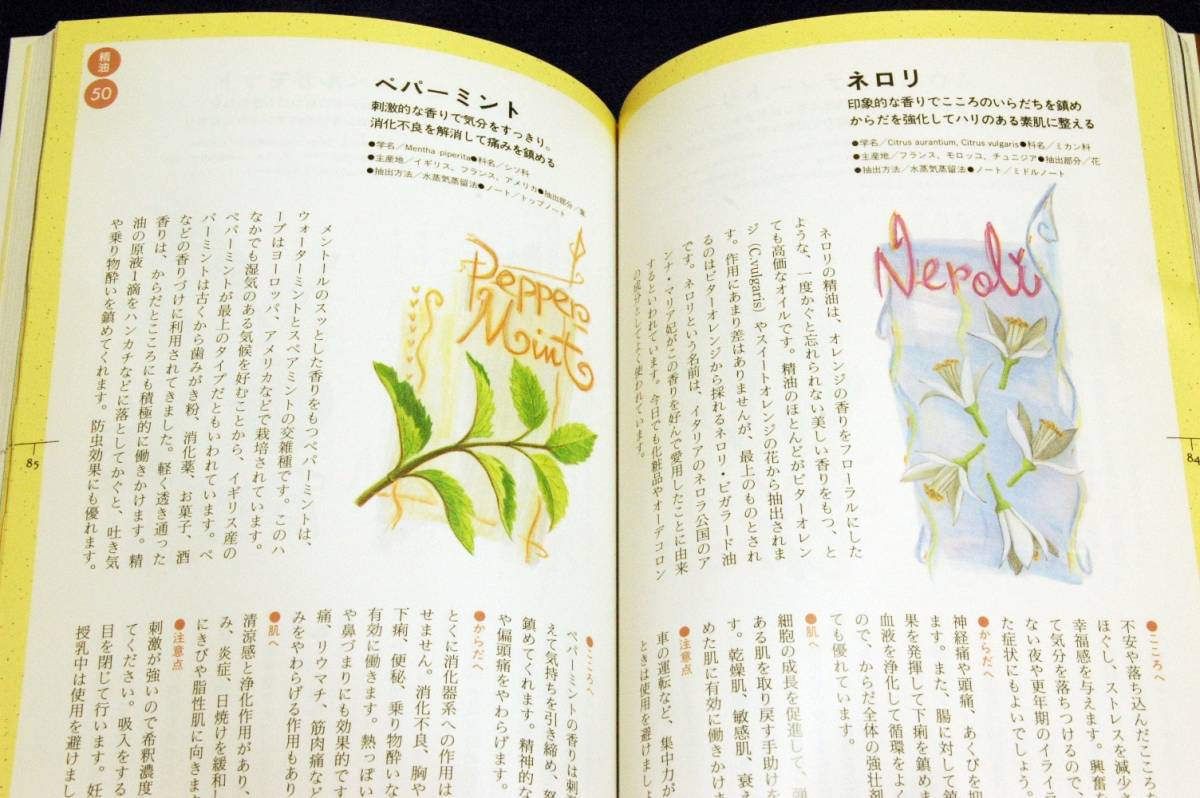 ネロリ
印象的な香りでこころのいらだちを鎮め
からだを強化してハリのある素肌に整える
●学名／Citrus aurantium, Citrus vulgaris●科名／ミカン科
●主産地／フランス、モロッコ、チュニジア●抽出部分／花
●抽出方法／水蒸気蒸留法●ノート／ミドルノート
Neroli
ネロリの精油は、オレンジの香りをフローラルにした
ような、一度かぐと忘れられない美しい香りをもつ、と
ても高価なオイルです。精油のほとんどがビターオレン
ジ（C.vulgaris）やスイートオレンジの花から抽出されま
す。作用にあまり差はありませんが、最上のものとされ
るのはビターオレンジから採れるネロリ・ビガラード油
です。ネロリという名前は、イタリアのネロラ公国のア
ンナ・マリア妃がこの香りを好んで愛用したことに由来
するといわれています。今日でも化粧品やオーデコロン
の成分としてよく使われています。
●こころへ
不安や落ち込んだこころを
ほぐし、ストレスを減少さ
幸福感を与えます。興奮を
て気分を落ちつけるので、
ない夜や更年期のイライラ
た症状にもよいでしょう。
●からだへ
神経痛や頭痛、あくびを抑
ます。また、腸に対して鎮
果を発揮して下痢を鎮めま
血液を浄化して循環をよく
ので、からだ全体の強壮剤
ても優れています。
●肌へ
細胞の成長を促進して、弾
ある肌を取り戻す手助けを
す。乾燥肌、敏感肌、衰え
めた肌に有効に働きかけま
●注意点
車の運転など、集中力が
ときは使用を避けましょ
84
精油
50
ペパーミント
刺激的な香りで気分をすっきり。
消化不良を解消して痛みを鎮める
●学名／Mentha piperita●科名／シソ科
●主産地／イギリス、フランス、アメリカ●抽出部分／葉
●抽出方法／水蒸気蒸留法●ノート／トップノート
Pepper
Mint
メントールのスッとした香りをもつペパーミントは、
ウォーターミントとスペアミントの交雑種です。このハ
ーブはヨーロッパ、アメリカなどで栽培されています。
なかでも湿気のある気候を好むことから、イギリス産の
ペパーミントが最上のタイプだともいわれています。ペ
パーミントは古くから歯みがき粉、消化薬、お菓子、酒
などの香りづけに利用されてきました。軽く透き通った
香りは、からだとこころにも積極的に働きかけます。精
油の原液1滴をハンカチなどに落としてかぐと、吐き気
や乗り物酔いを鎮めてくれます。防虫効果にも優れます。
●こころへ
ペパーミントの香りは刺
えて気持ちを引き締め、怒
鎮めてくれます。精神的な
や偏頭痛をやわらげます。
●からだへ
とくに消化器系への作用は
せません。消化不良、胸や
下痢、便秘、乗り物酔いな
有効に働きます。熱っぽい
や鼻づまりにも効果的です
痛、リウマチ、筋肉痛など
みをやわらげる作用もあり
●肌へ
清涼感と浄化作用があり、
み、炎症、日焼けを緩和し
にきびや脂性肌に向きます
●注意点
刺激が強いので希釈濃度
てください。吸入をする
目を閉じて行います。妊
授乳中は使用を避けまし
85